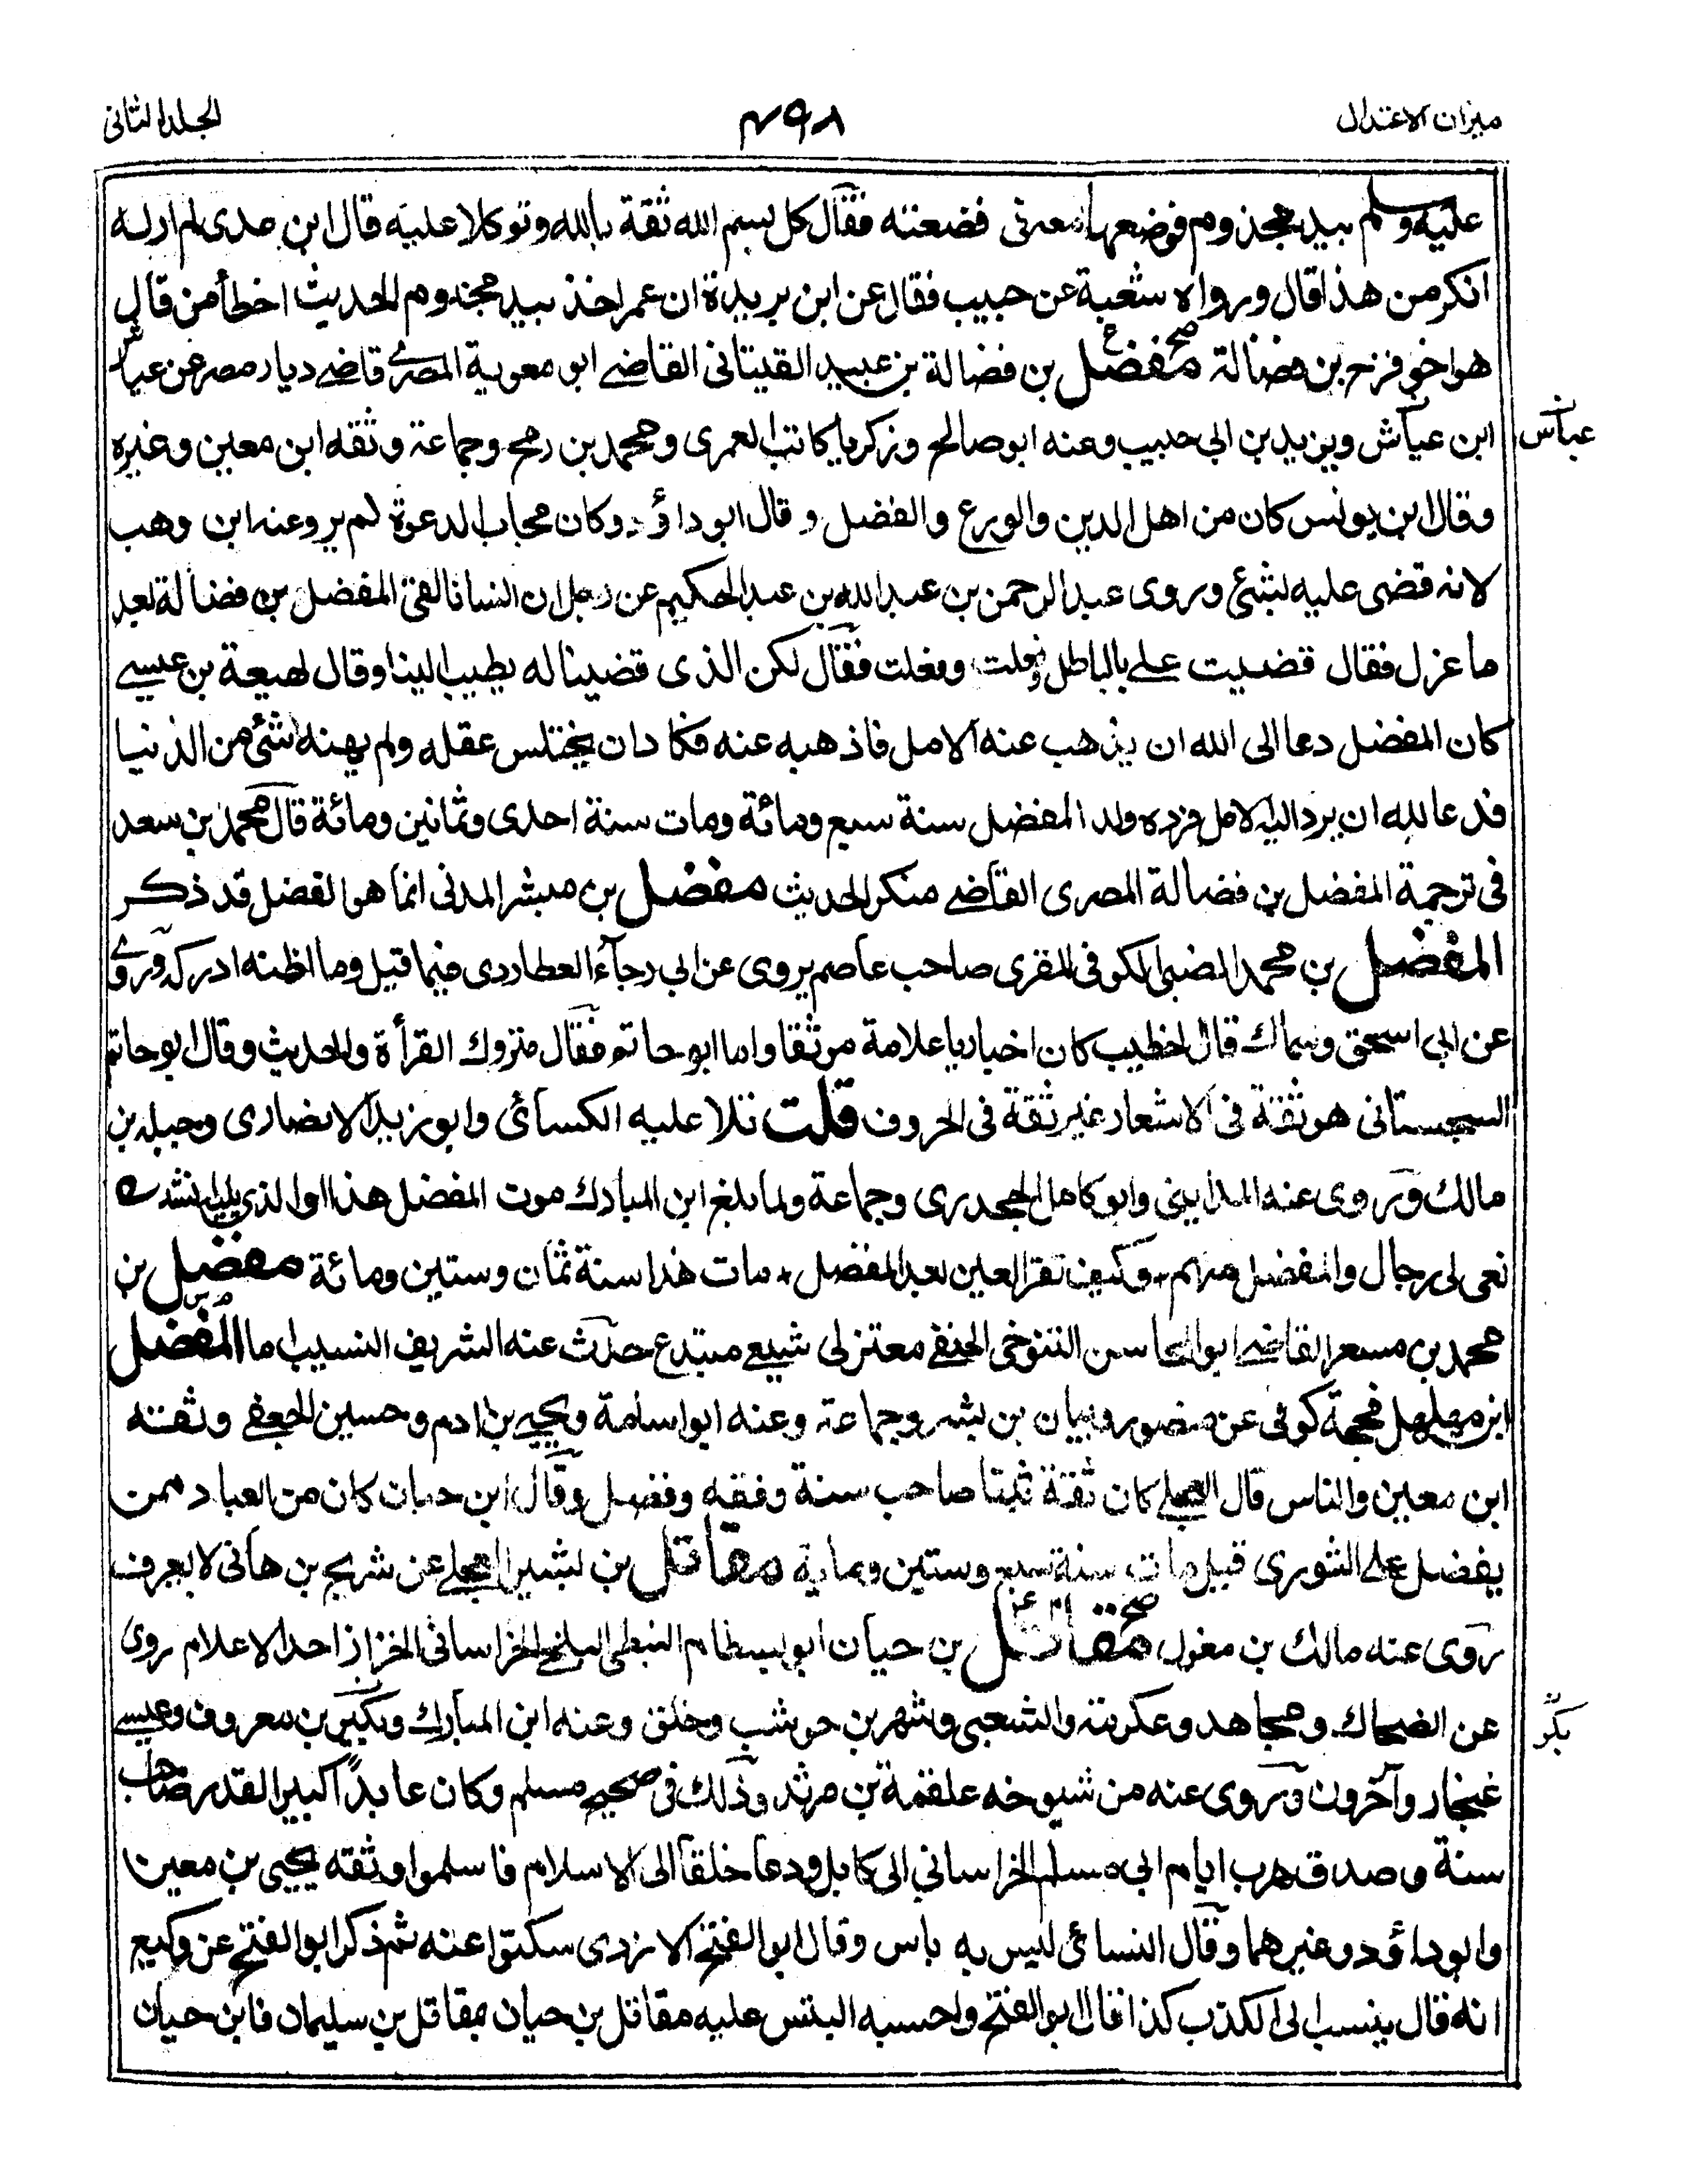 ميزان الاعتدال
۴۹۸
الجلد الثانى
عليه وسلم بيد مجذوم فوضعها معه فى قصعته فقال كل بسم الله ثقة بالله وتوكلا عليه قال ابن عدى لم ار له
انكر من هذا قال ورواه شعبة عن حبيب فقال عن ابن بريدة ان عمر اخذ بيد مجذوم الحديث اخطأ من قال
هو اخو فرج بن فضالة صح مفضل ع بن فضالة بن عبيد القتبانى القاضے ابو معوية المصرے قاضے ديار مصر عن عياش
ابن عياش ويزيد بن ابى حبيب وعنه ابو صالح وزكريا كاتب العمرى ومحمد بن رمح وجماعة وثقه ابن معين وغيره
عباس
وقال ابن يونس كان من اهل الدين والورع والفضل وقال ابو داؤد وكان مجاب الدعوة لم يرو عنه ابن وهب
لانه قضى عليه بشئ وروى عبد الرحمن بن عبد الله بن عبد الحكيم عن رجل ان انسانا لقى المفضل بن فضالة بعد
ما عزل فقال قضيت علے بالباطل وفعلت وفعلت فقال لكن الذى قضينا له يطيب الينا وقال لهيعة بن عيسے
كان المفضل دعا الى الله ان يذهب عنه الامل فاذهبه عنه فكاد ان يختلس عقله ولم يهنه شئ من الدنيا
فدعا لله ان يرد اليه الامل فرده ولد المفضل سنة سبع ومائة ومات سنة احدى وثمانين ومائة قال محمد بن سعد
فى ترجمة المفضل بن فضالة المصرى القاضے منكر الحديث مفضل بن مبشر المدنى انما هو الفضل قد ذكر
المفضل بن محمد الضبى الكوفى المقرى صاحب عاصم يروى عن ابى رجاء العطاردى فيما قيل وما اظنه ادركه وروے
عن ابى اسحق وسماك قال الخطيب كان اخباريا علامة موثقا واما ابو حاتم فقال متروك القرأة والحديث وقال ابو حاتم
السجستانى هو ثقة فى الاشعار غير ثقة فى الحروف قلت تلا عليه الكسائى وابو زيد الانصارى وجبلة بن
مالك وروى عنه المداينى وابو كامل الجحدرى وجماعة ولما بلغ ابن المبارك موت المفضل هذا او الذى يليه انشد ے
نعى لى رجال والمفضل منهم ٭ وكيف تقر العين بعد المفضل ٭ مات هذا سنة ثمان وستين ومائة مفضل بن
محمد بن مسعر القاضے ابو المحاسن التنوخى الحنفے معتزلى شيعے مبتدع حدث عنه الشريف النسيب اما المفضل
ابن مهلهل فحجة كوفى عن منصور وبيان بن بشر وجماعة وعنه ابو اسامة ويحيے بن ادم وحسين الجعفے وثقته
ابن معين والناس قال العجلے كان ثقة ثبتا صاحب سنة وفقه وفضل وقال ابن حبان كان من العباد ممن
يفضل على الثورى قيل مات سنة سبع وستين وماية مقاتل بن بشير العجلے عن شريح بن هانى لا يعرف
روى عنه مالك بن مغول صح مقاتل بن حيان ابو بسطام النبطى البلخے الخراسانى الخزاز احد الاعلام روى
عن الضحاك ومجاهد وعكرمة والشعبى وشهر بن حوشب وخلق وعنه ابن المبارك وبكير بن معروف وعيسے
بكر
غنجار وآخرون وروى عنه من شيوخه علقمة بن مرثد وذلك فى صحيح مسلم وكان عابدًا كبير القدر صاحب
سنة وصدق هرب ايام ابى مسلم الخراسانى الى كابل ودعا خلقا الى الاسلام فاسلموا وثقه يحيى بن معين
وابو داؤد وغيرهما وقال النسائى ليس به باس وقال ابو الفتح الازدى سكتوا عنه ثم ذكر ابو الفتح عن وكيع
انه قال ينسب الى الكذب كذا قال ابو الفتح واحسبه التبس عليه مقاتل بن حيان بمقاتل بن سليمان فابن حيان